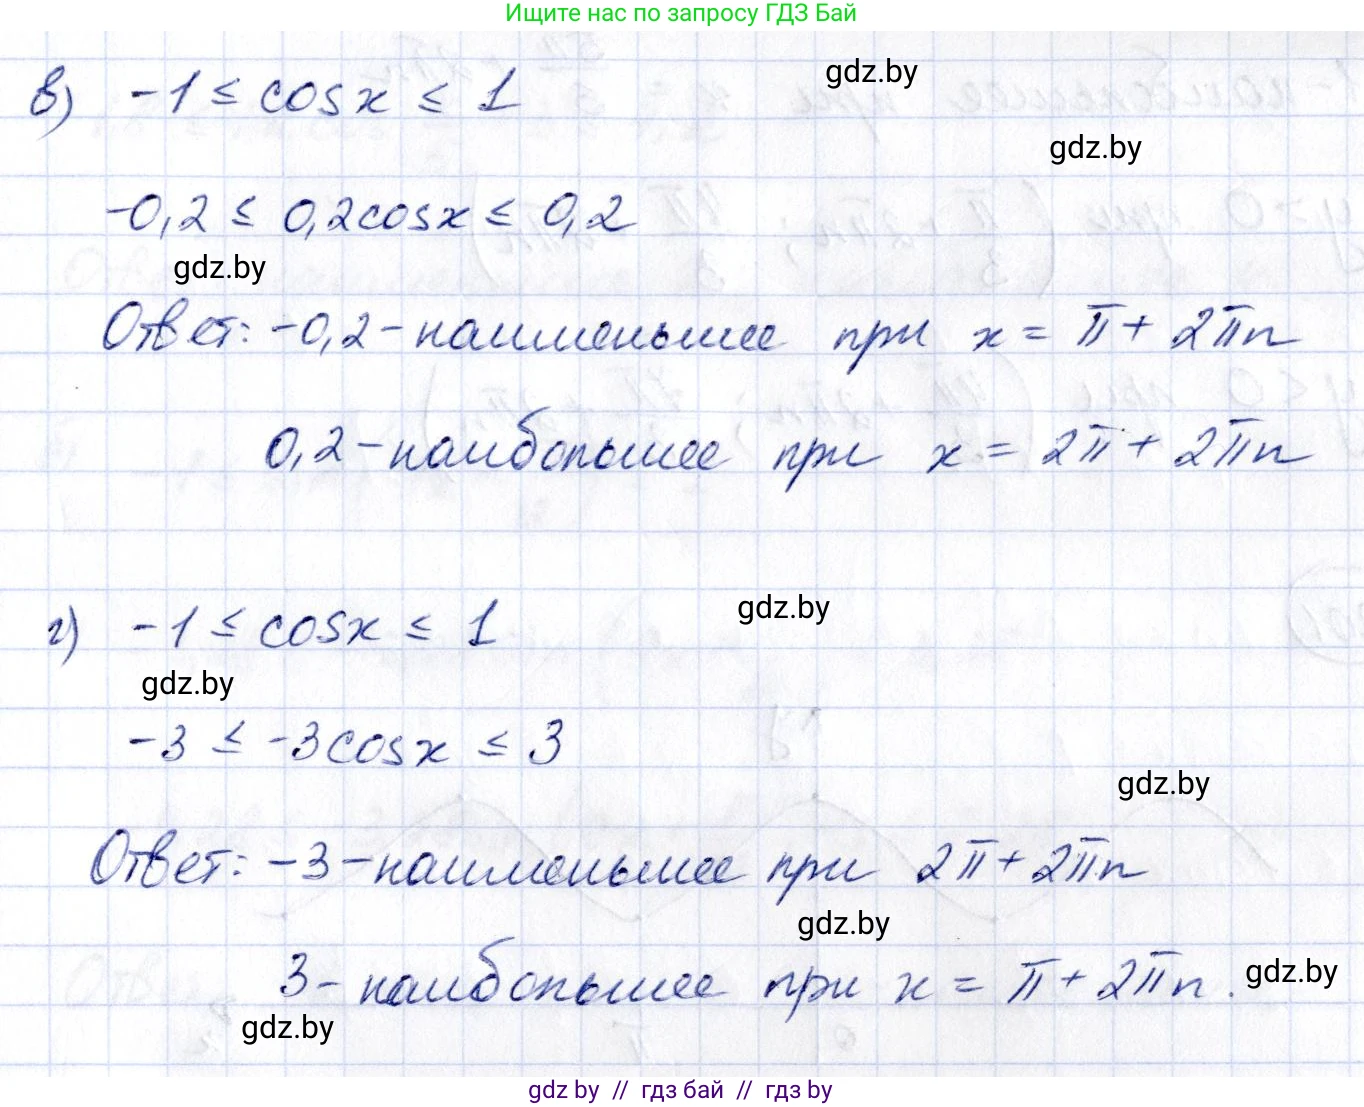 Ищите нас по запросу ГДЗ Бай
в) -1 ≤ cosx ≤ 1
gdz.by
gdz.by
-0,2 ≤ 0,2cosx ≤ 0,2
gdz.by
Ответ: -0,2 - наименьшее при x = π + 2πn
0,2 - наибольшее при x = 2π + 2πn
г) -1 ≤ cosx ≤ 1
gdz.by
gdz.by
-3 ≤ -3cosx ≤ 3
gdz.by
Ответ: -3 - наименьшее при 2π + 2πn
gdz.by
3 - наибольшее при x = π + 2πn.
gdz.by
gdz.by
gdz by // гдз бай // гдз by